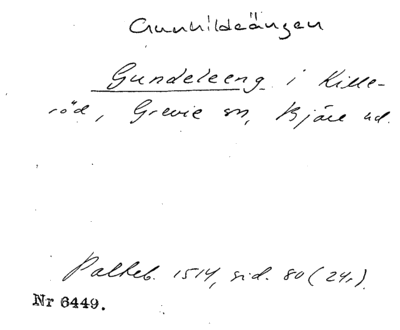 Gunnildeängen
Gundeleeng i Kille-
röd, Grevie sn, Bjäre hd.
Palteb. 1514, sid. 80 (24r).
Nr 6449.